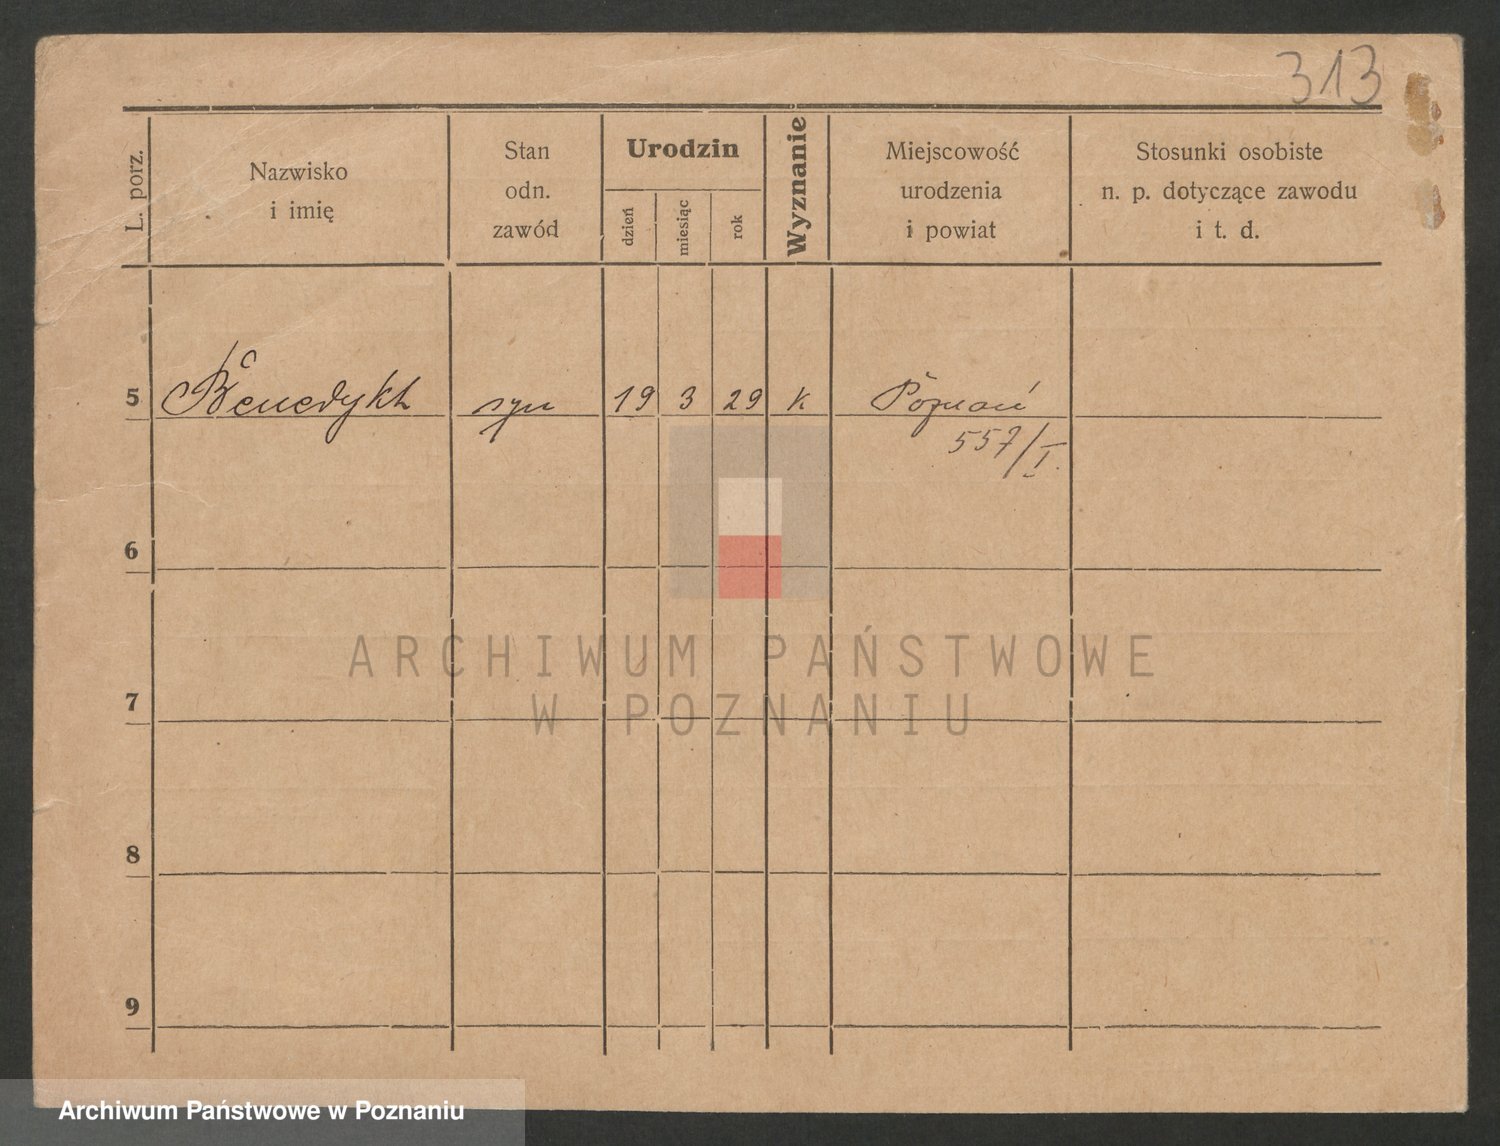 313
L. porz.
Nazwisko
i imię
Stan
odn.
zawód
Urodzin
dzień
miesiąc
rok
Wyznanie
Miejscowość
urodzenia
i powiat
Stosunki osobiste
n. p. dotyczące zawodu
i t. d.
5 Benedykt syn 19 3 29 K Poznań
557/I.
6
7
8
9
ARCHIWUM PAŃSTWOWE
W POZNANIU
Archiwum Państwowe w Poznaniu